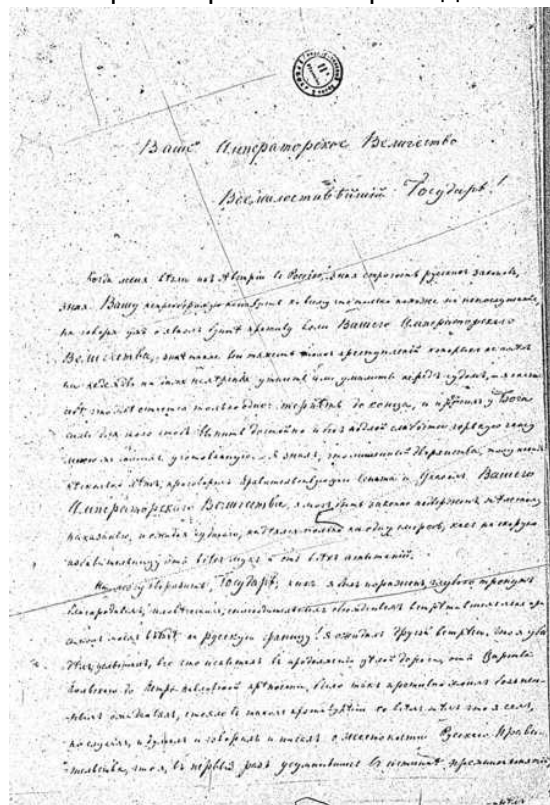 Ваше Императорское Величество
Всемилостивѣйшій Государь!
Когда меня везли изъ Австріи въ Россію, зная строгость русскихъ законовъ,
зная Вашу непреоборимую ненависть ко всему что только похоже на непослушаніе,
не говоря уже о явномъ бунтѣ противу воли Вашего Императорскаго
Величества, зная также всю тяжесть моихъ преступленій которыхъ не имѣлъ
ни надежды ни даже намѣренія утаить или умалить передъ судомъ, я сказалъ
себѣ что мнѣ остается только одно: терпѣть до конца, и просилъ у Бога
силы для того чтобъ выпить достойно и безъ подлой слабости горькую чашу
мною же самимъ уготованную. Я зналъ, что лишенный дворянства, тому назадъ
нѣсколько лѣтъ, приговоромъ Правительствующаго Сената и Указомъ Вашего
Императорскаго Величества, я могъ быть законно подверженъ тѣлесному
наказанію, и ожидая худшаго, надѣялся только на одну смерть, какъ на скорую
избавительницу отъ всѣхъ мукъ и отъ всѣхъ испытаній.
Не могу выразить, Государь, какъ я былъ пораженъ, глубоко тронутъ
благороднымъ, человѣчнымъ, снисходительнымъ обхожденіемъ встрѣтившимъ меня при
самомъ моемъ въѣздѣ на русскую границу! Я ожидалъ другой встрѣчи. Что я уви
дѣлъ, услышалъ, все что испыталъ въ продолженіи цѣлой дороги, отъ Царства
Польскаго до Петро-павловской крѣпости, было такъ противно моимъ боязнен-
нымъ ожиданіямъ, стояло въ такомъ противурѣчіи со всѣмъ тѣмъ что я самъ,
по слухамъ, и думалъ и говорилъ и писалъ о жестокости Русскаго Прави-
тельства, что я, въ первый разъ усумнившись въ истинѣ прежнихъ понятій,